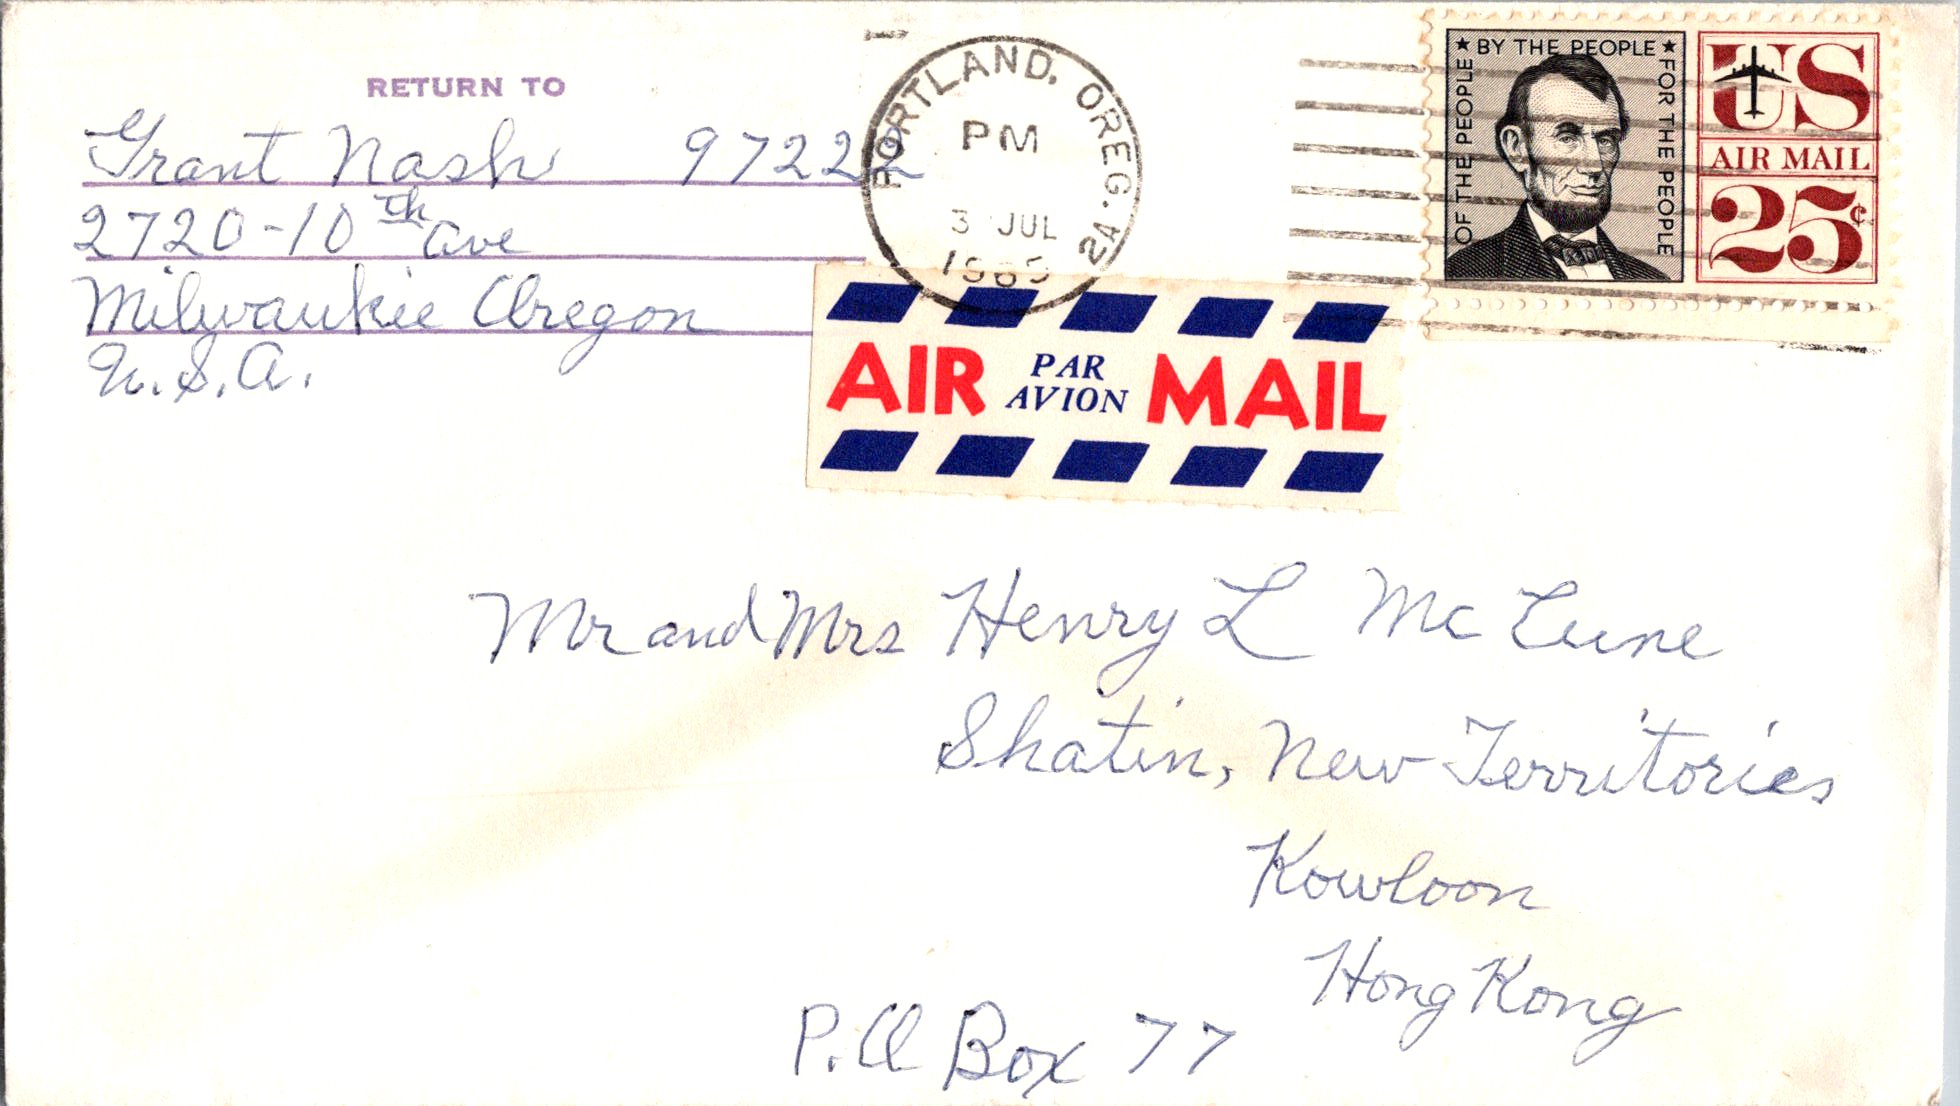 RETURN TO
Grant Nash 97222
2720-10th Ave
Milwaukie Oregon
U.S.A.
PORTLAND, OREG. 2A
PM
3 JUL
OF THE PEOPLE ★ BY THE PEOPLE ★ FOR THE PEOPLE
US
AIR MAIL
25¢
AIR PAR AVION MAIL
Mr and Mrs Henry L Mc Cune
Shatin, New Territories
Kowloon
Hong Kong
P.O Box 77